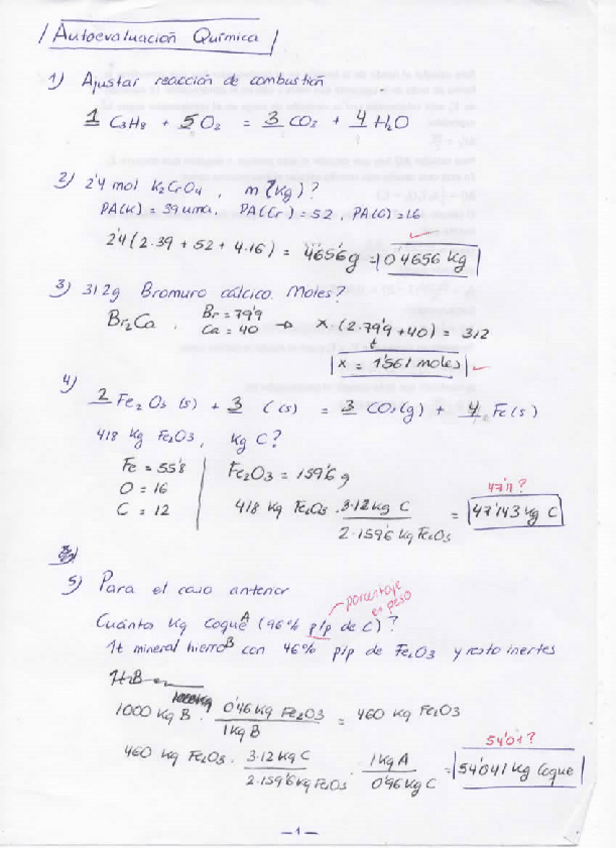 Autoevaluación Química
1) Ajustar reacción de combustión
1 C3H8 + 5 O2 = 3 CO2 + 4 H2O
2) 2'4 mol K2CrO4 , m (kg) ?
PA(K) = 39 uma, PA(Cr) = 52 , PA(O) = 16
2'4 (2·39 + 52 + 4·16) = 465'6 g = 0'4656 kg
3) 312g Bromuro cálcico. Moles?
Br2Ca . Br = 79'9 Ca = 40 → x·(2·79'9 + 40) = 312
x = 1'561 moles
4) 2 Fe2O3 (s) + 3 C (s) = 3 CO2 (g) + 4 Fe (s)
418 kg Fe2O3 , kg C?
Fe = 55'8
O = 16
C = 12
Fe2O3 = 159'6 g
47'1?
418 kg Fe2O3 · 3·12 kg C / 2·159'6 kg Fe2O3 = 47'143 kg C
5) Para el caso anterior
porcentaje en peso
Cuántos kg coque A (96% p/p de C) ?
1t mineral hierro B con 46% p/p de Fe2O3 y resto inertes
1000 kg B · 0'46 kg Fe2O3 / 1 kg B = 460 kg Fe2O3
54'01?
460 kg Fe2O3 · 3·12 kg C / 2·159'6 kg Fe2O3 · 1 kg A / 0'96 kg C = 54'041 kg coque
-1-